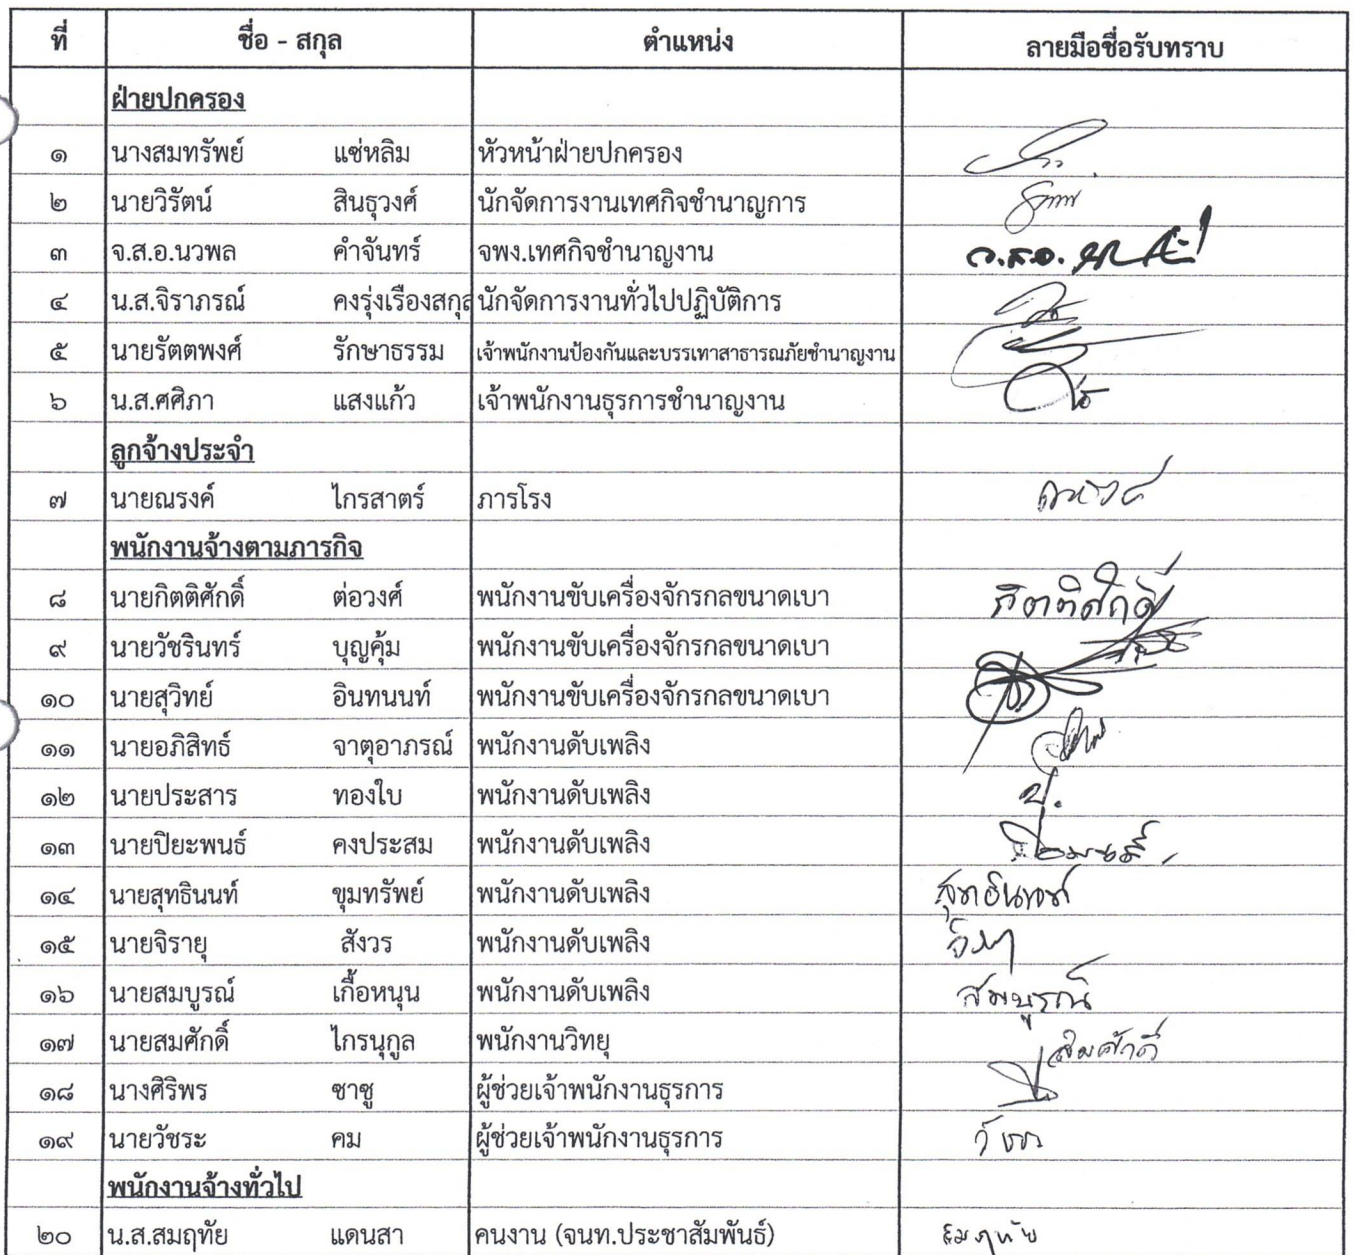 ที่ ชื่อ - สกุล ตำแหน่ง ลายมือชื่อรับทราบ
ฝ่ายปกครอง
๑ นางสมทรัพย์ แซ่หลิม หัวหน้าฝ่ายปกครอง
๒ นายวิรัตน์ สินธุวงศ์ นักจัดการงานเทศกิจชำนาญการ
๓ จ.ส.อ.นวพล คำจันทร์ จพง.เทศกิจชำนาญงาน จ.ส.อ.
๔ น.ส.จิราภรณ์ คงรุ่งเรืองสกุล นักจัดการงานทั่วไปปฏิบัติการ
๕ นายรัตตพงศ์ รักษาธรรม เจ้าพนักงานป้องกันและบรรเทาสาธารณภัยชำนาญงาน
๖ น.ส.ศศิภา แสงแก้ว เจ้าพนักงานธุรการชำนาญงาน
ลูกจ้างประจำ
๗ นายณรงค์ ไกรสาตร์ ภารโรง ณรงค์
พนักงานจ้างตามภารกิจ
๘ นายกิตติศักดิ์ ต่อวงศ์ พนักงานขับเครื่องจักรกลขนาดเบา กิตติศักดิ์
๙ นายวัชรินทร์ บุญคุ้ม พนักงานขับเครื่องจักรกลขนาดเบา
๑๐ นายสุวิทย์ อินทนนท์ พนักงานขับเครื่องจักรกลขนาดเบา
๑๑ นายอภิสิทธ์ จาตุอาภรณ์ พนักงานดับเพลิง
๑๒ นายประสาร ทองใบ พนักงานดับเพลิง
๑๓ นายปิยะพนธ์ คงประสม พนักงานดับเพลิง
๑๔ นายสุทธินนท์ ขุมทรัพย์ พนักงานดับเพลิง สุทธินนท์
๑๕ นายจิรายุ สังวร พนักงานดับเพลิง
๑๖ นายสมบูรณ์ เกื้อหนุน พนักงานดับเพลิง สมบูรณ์
๑๗ นายสมศักดิ์ ไกรนุกูล พนักงานวิทยุ สมศักดิ์
๑๘ นางศิริพร ซาซู ผู้ช่วยเจ้าพนักงานธุรการ
๑๙ นายวัชระ คม ผู้ช่วยเจ้าพนักงานธุรการ
พนักงานจ้างทั่วไป
๒๐ น.ส.สมฤทัย แดนสา คนงาน (จนท.ประชาสัมพันธ์) สมฤทัย